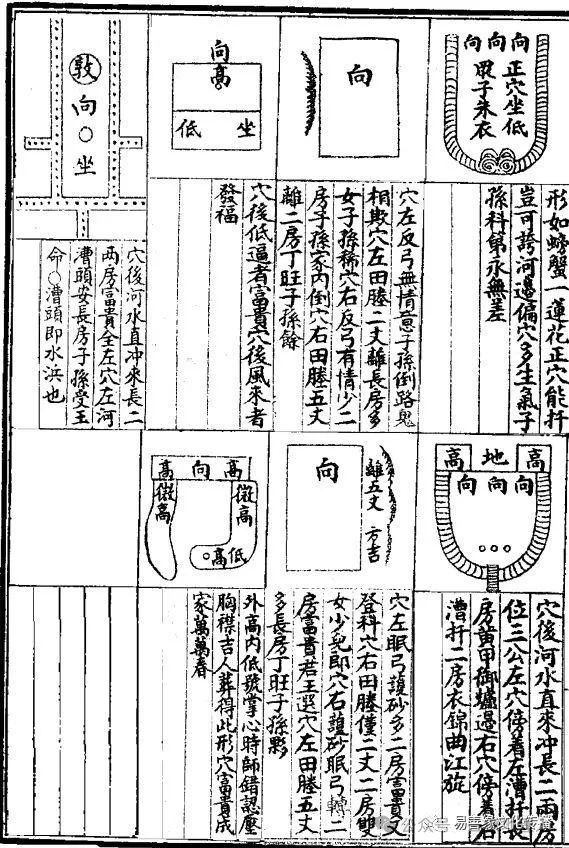 向向向
正穴坐低
子朱衣
形如螃蟹一蓮花正穴能扦
豈可誇河邊偏穴多生氣子
孫科第永無差
向
穴左反弓無情意子孫倒路鬼
相欺穴左田塍二丈離長房多
女子孫稀穴右反弓有情少二
房子孫家内倒穴右田塍五丈
離二房丁旺子孫餘
向
高
坐
低
穴後低逼者富貴穴後風來者
發福
敦
向
坐
穴後河水直冲來長二
兩房富貴全左穴左河
漕頭安長房子孫受玉
命○漕頭即水浜也
高地高
向向向
穴後河水直來冲長二兩房
位三公左穴傍着左漕扦長
房黃甲御爐過右穴傍着右
漕扦二房衣錦曲江旋
離五丈方吉
向
穴左眠弓護砂多二房富貴又
登科穴右田塍僅二丈二房雙
女少兒郎穴右護砂眠弓轉二
房富貴若王選穴左田塍五丈
多長房丁旺子孫夥
高向高
微高
微高
低高
外高内低號掌心時師錯認壓
胸襟吉人葬得此形穴富貴成
家萬萬春
公众号 易善